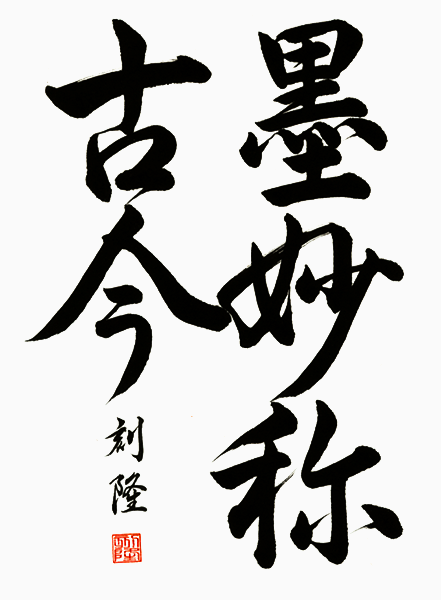 墨妙称
古今
刻隆